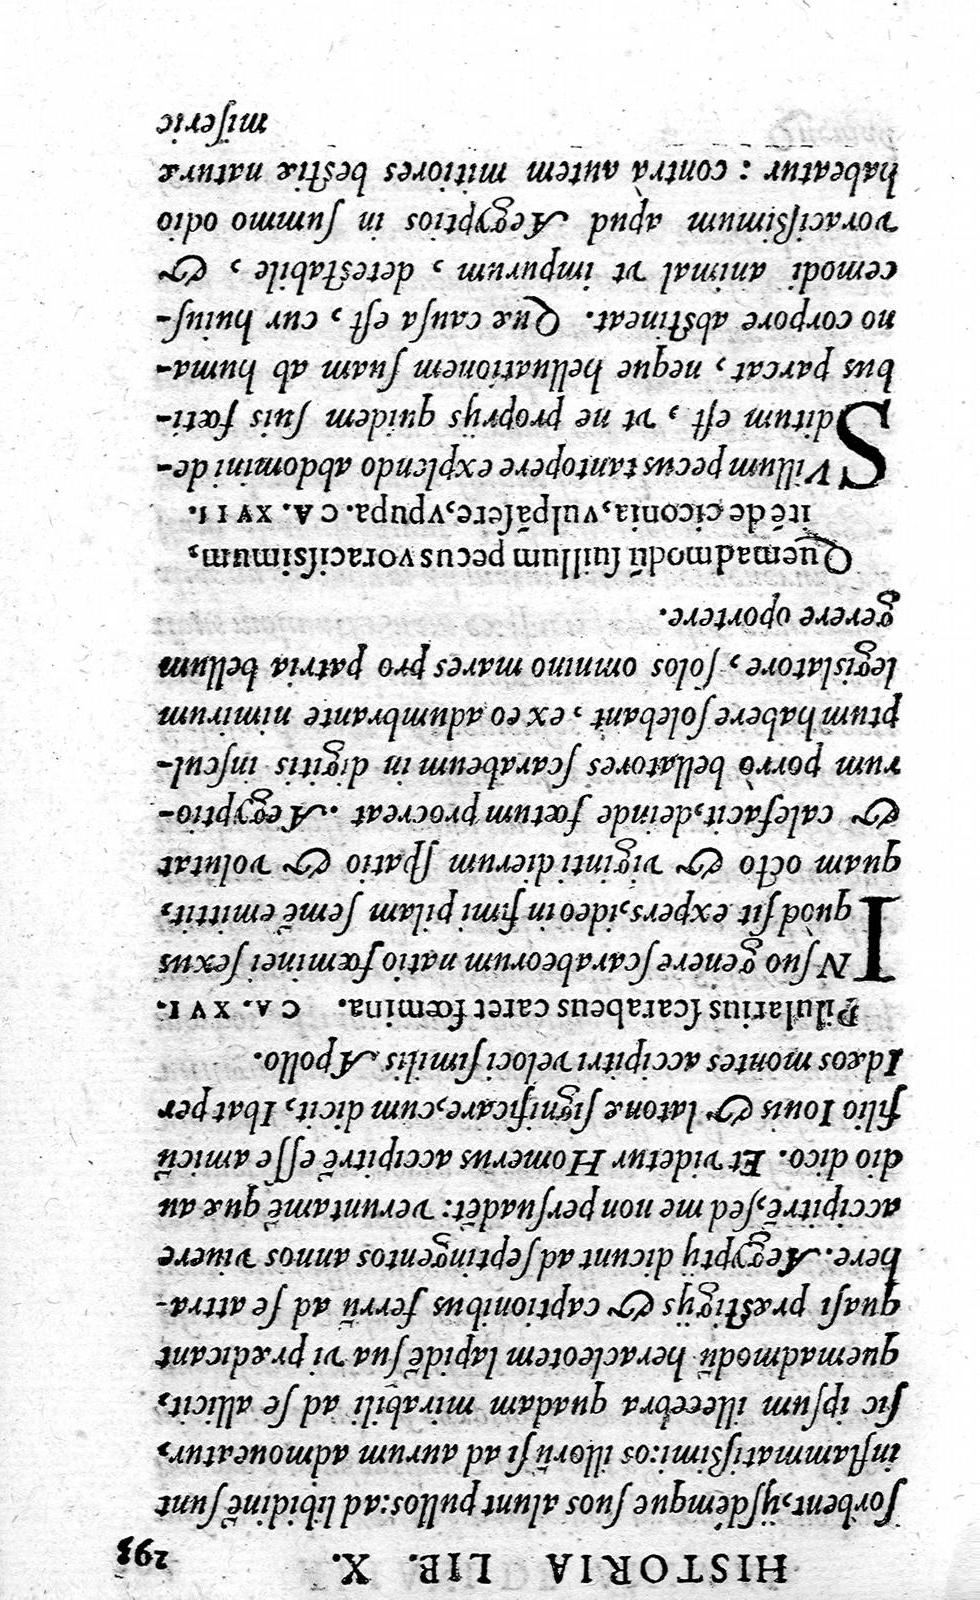 HISTORIA LIB. X. 293
ſorbent, ijſdémque ſuos alunt pullos: ad libidinẽ ſunt
inflammatiſsimi: os illorũ ſi ad aurum admoueatur,
ſic ipſum illecebra quadam mirabili ad ſe allicit,
quemadmodũ heracleotem lapidẽ ſua vi prædicant
quaſi præſtigijs & captionibus ferrũ ad ſe attra-
here. Aegyptij dicunt ad ſeptingentos annos viuere
accipitrẽ, ſed me non perſuadẽt: veruntamẽ quæ au
dio dico. Et videtur Homerus accipitrẽ eſſe amicũ
filio Iouis & latonæ ſignificare, cum, dicit, Ibat per
Idæos montes accipitri veloci ſimilis, Apollo.
Pilularius ſcarabeus caret fœmina. CA. XVI.
IN ſuo genere ſcarabeorum natio fœminei ſexus
quòd ſit expers, ideo in fimi pilam ſemẽ emittit,
quam octo & viginti dierum ſpatio & volutat
& calefacit, deinde fœtum procreat. Aegyptio-
rum porrò bellatores ſcarabeum in digitis inſcul-
ptum habere ſolebant, ex eo adumbrante nimirum
legislatore, ſolos omnino mares pro patria bellum
gerere oportere.
Quemadmodũ ſuillum pecus voraciſsimum,
itẽ de ciconia, vulpãſere, vpupa. CA. XVII.
SVillum pecus tantopere explendo abdomini de-
ditum eſt, vt ne proprijs quidem ſuis fœti-
bus parcat, neque helluationem ſuam ab huma-
no corpore abſtineat. Quæ cauſa eſt, cur huiuſ-
cemodi animal vt impurum, deteſtabile, &
voraciſsimum apud Aegyptios in ſummo odio
habeatur: contrà autem mitiores beſtiæ naturæ
miſeric